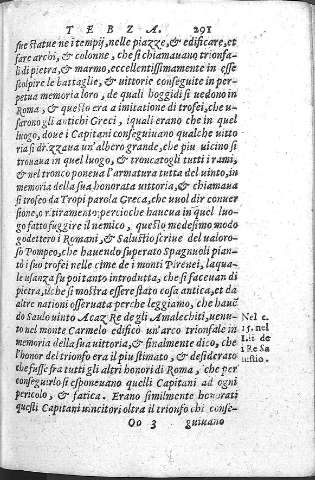 TERZA. 291
sue statue ne i tempij, nelle piazze, & edificare, et
fare archi, & colonne, che si chiamauano trionfa-
li di pietra, & marmo, eccellentissimamente in esse
scolpire le battaglie, & uittorie conseguite in per-
petua memoria loro, de quali hoggidi si uedono in
Roma, & questo era a imitatione di trofei, che u-
sarono gli antichi Greci, i quali erano che in quel
luogo, doue i Capitani conseguiuano qualche uitto
ria si drizzaua un'albero grande, che piu uicino si
trouaua in quel luogo, & troncatogli tutti i rami,
& nel tronco poneua l'armatura tutta del uinto, in
memoria della sua honorata uittoria, & chiamaua
si troseo da Tropi parola Greca, che vuol dir conuer
sione, o ritiramento: percioche haueua in quel luo-
go fatto fuggire il nemico, questo medesimo modo
godettero i Romani, & Salustio scriue del ualoro-
so Pompeo, che hauendo superato Spagnuoli pian-
tò i suoi trofei nelle cime de i monti Pirenei, laqua-
le usanza fu poi tanto introdutta, che si faceuan di
pietra, il che si mostra essere stato cosa antica, et da
altre nationi osseruata perche leggiamo, che hauē
do Saulo uinto Acaz Re degli Amalechiti, uenu-
to nel monte Carmelo edificò un'arco trionfale in
memoria della sua uittoria, & finalmente dico, che
l'honor del trionfo era il piu stimato, & desiderato
che fusse fra tutti gli altri honori di Roma, che per
conseguirlo si esponeuano quelli Capitani ad ogni
pericolo, & fatica. Erano similmente honorati
questi Capitani uincitori oltra il trionfo chi conse-
Nel c.
15. nel
L.ii de
i Re Sa
lustio.
Oo 3 guiuano